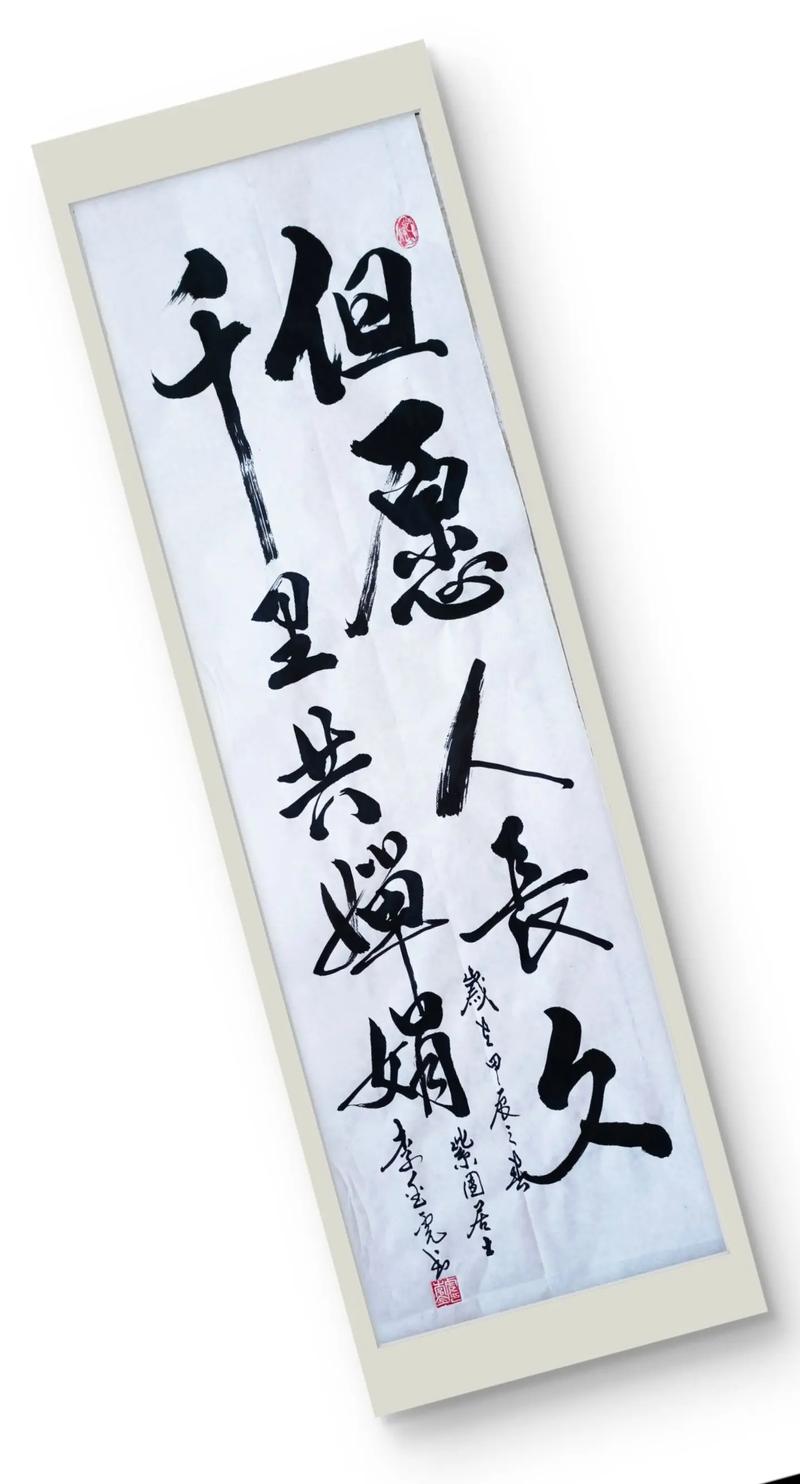 但愿人長久
千里共嬋娟
歲在甲辰之春
紫園居士
李金虎书